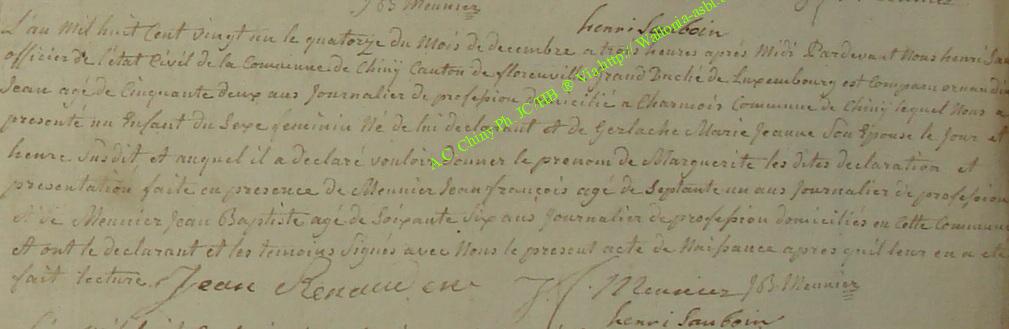 JB Meunier
henri Sauboin
L'an Mil huit Cent vingt un le quatorze du Mois de decembre a trois heures aprés Midi Pardevant Nous henri Sau
officier de l'état Civil de la Commune de Chiny Canton de florenville grand Duché de Luxembourg est Comparu
Jean agé de Cinquante deux ans Journalier de profession domicilié a Charmois Commune de Chiny lequel Nous a
présenté un Enfant du Sexe feminin Né de lui declarant et de Gerlache Marie Jeanne Son Epouse le Jour et
heure Susdit et auquel il a declaré vouloir donner le prenom de Marguerite les dites declaration et
presentation faite en presence de Meunier Jean françois agé de Septante un ans Journalier de profession
et de Meunier Jean Baptiste agé de Soixante Six ans Journalier de profession domiciliés en Cette Commune
et ont le declarant et les temoins Signés avec Nous le present acte de Naissance apres qu'il leur en a eté
fait lecture. Jean J f Meunier JB Meunier
henri Sauboin
A.C. Chiny Ph. JC/HB @ Via http://Wallonia-asbl